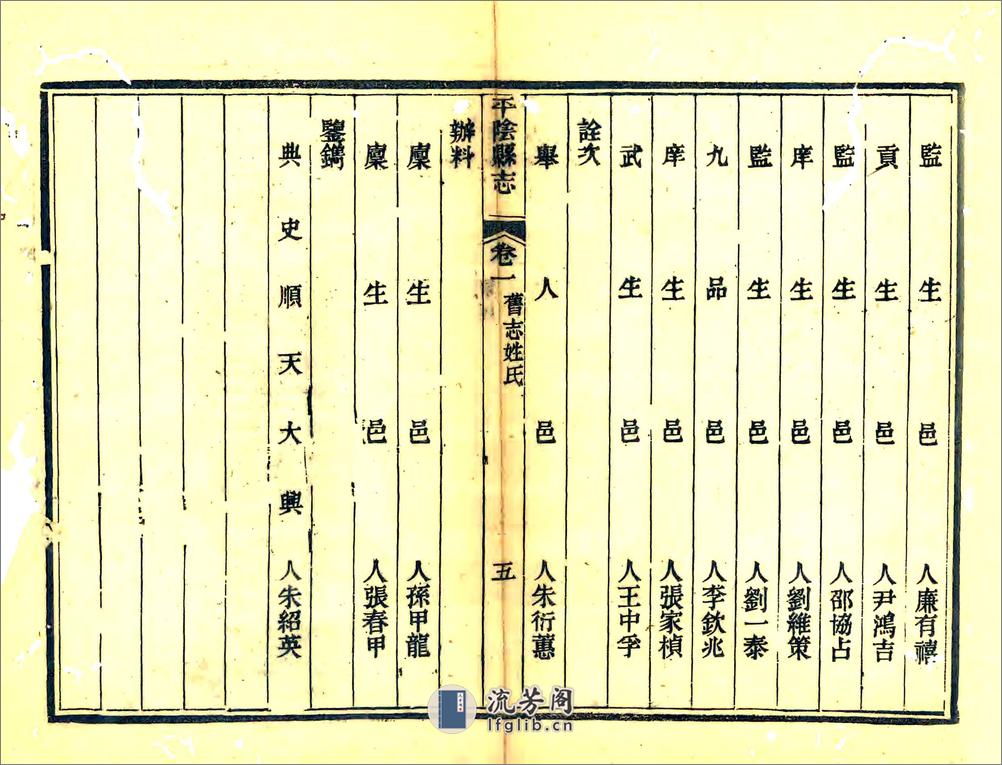 監生邑人廉有禧
貢生邑人尹鴻吉
監生邑人邵協占
庠生邑人劉維策
監生邑人劉一泰
九品邑人李欽兆
庠生邑人張家楨
武生邑人王中孚
詮次
舉人邑人朱衍蕙
平陰縣志
卷一
舊志姓氏
五
辦料
廩生邑人孫甲龍
廩生邑人張春甲
鑒鐫
典史順天大興人朱紹英
流芳阁
lfglib.cn